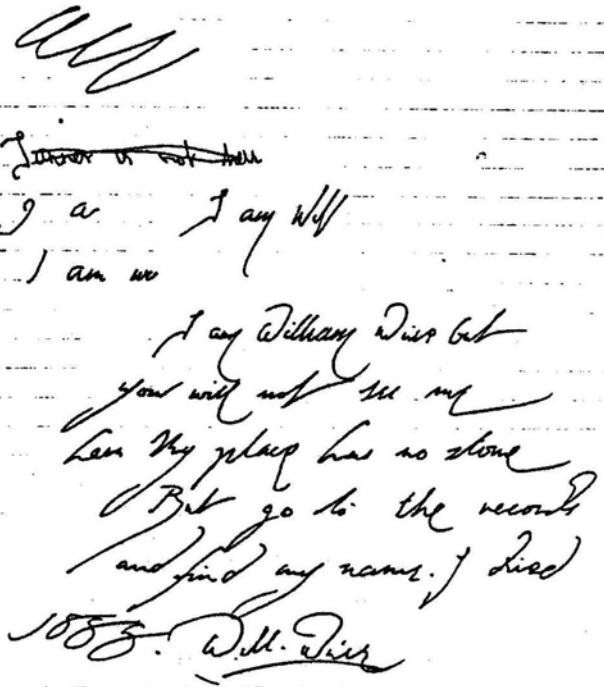 is not
I a I am Will
I am we
I am William but
you will not see me
here My place has no stone
But go to the records
and find my name. I died
Will.